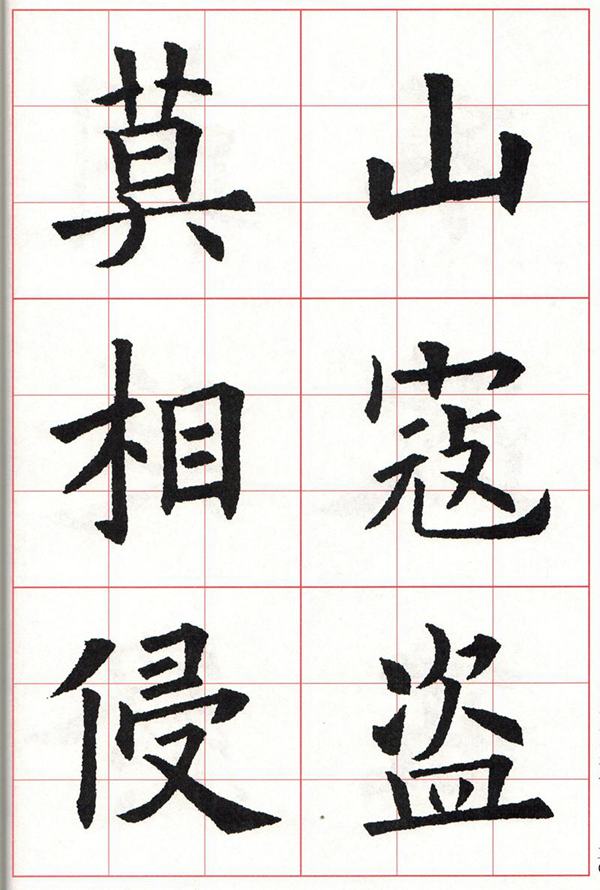 山寇盗
莫相侵